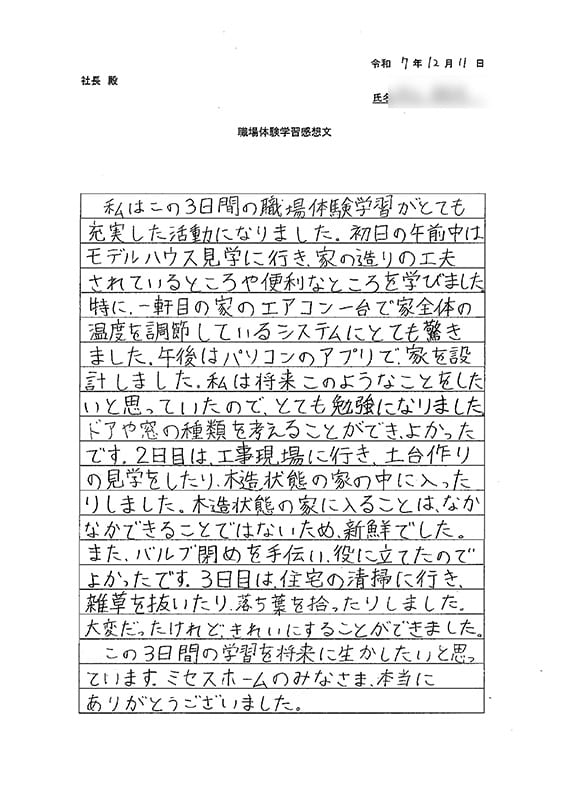 令和 7年12月11日
社長 殿
氏名
職場体験学習感想文
私はこの3日間の職場体験学習がとても
充実した活動になりました。初日の午前中は
モデルハウス見学に行き、家の造りの工夫
されているところや便利なところを学びました
特に、一軒目の家のエアコン一台で家全体の
温度を調節しているシステムにとても驚き
ました。午後はパソコンのアプリで、家を設
計しました。私は将来このようなことをした
いと思っていたので、とても勉強になりました
ドアや窓の種類を考えることができ、よかった
です。2日目は、工事現場に行き、土台作り
の見学をしたり、木造状態の家の中に入った
りしました。木造状態の家に入ることは、なか
なかできることではないため、新鮮でした。
また、バルブ閉めを手伝い、役に立てたので
よかったです。3日目は、住宅の清掃に行き、
雑草を抜いたり、落ち葉を拾ったりしました。
大変だったけれど、きれいにすることができました。
この3日間の学習を将来に生かしたいと思っ
ています。ミセスホームのみなさま、本当に
ありがとうございました。